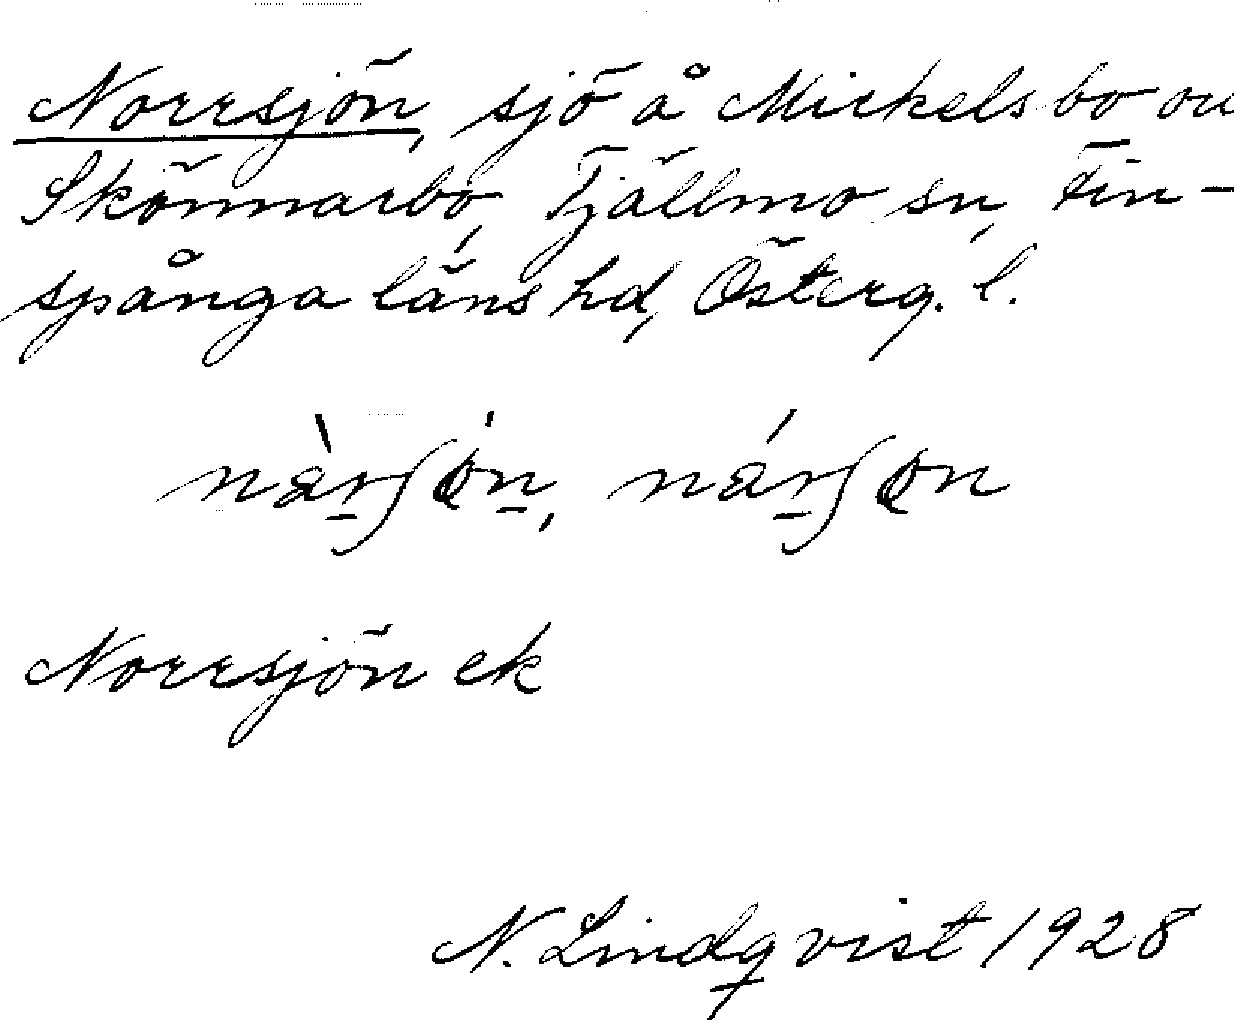 Norrsjön, sjö å Mickelsbo ou
Skönnarbo, Tjällmo sn, Fin-
spånga läns hd, Österg. l.
Norrsjön ek
N. Lindqvist 1928